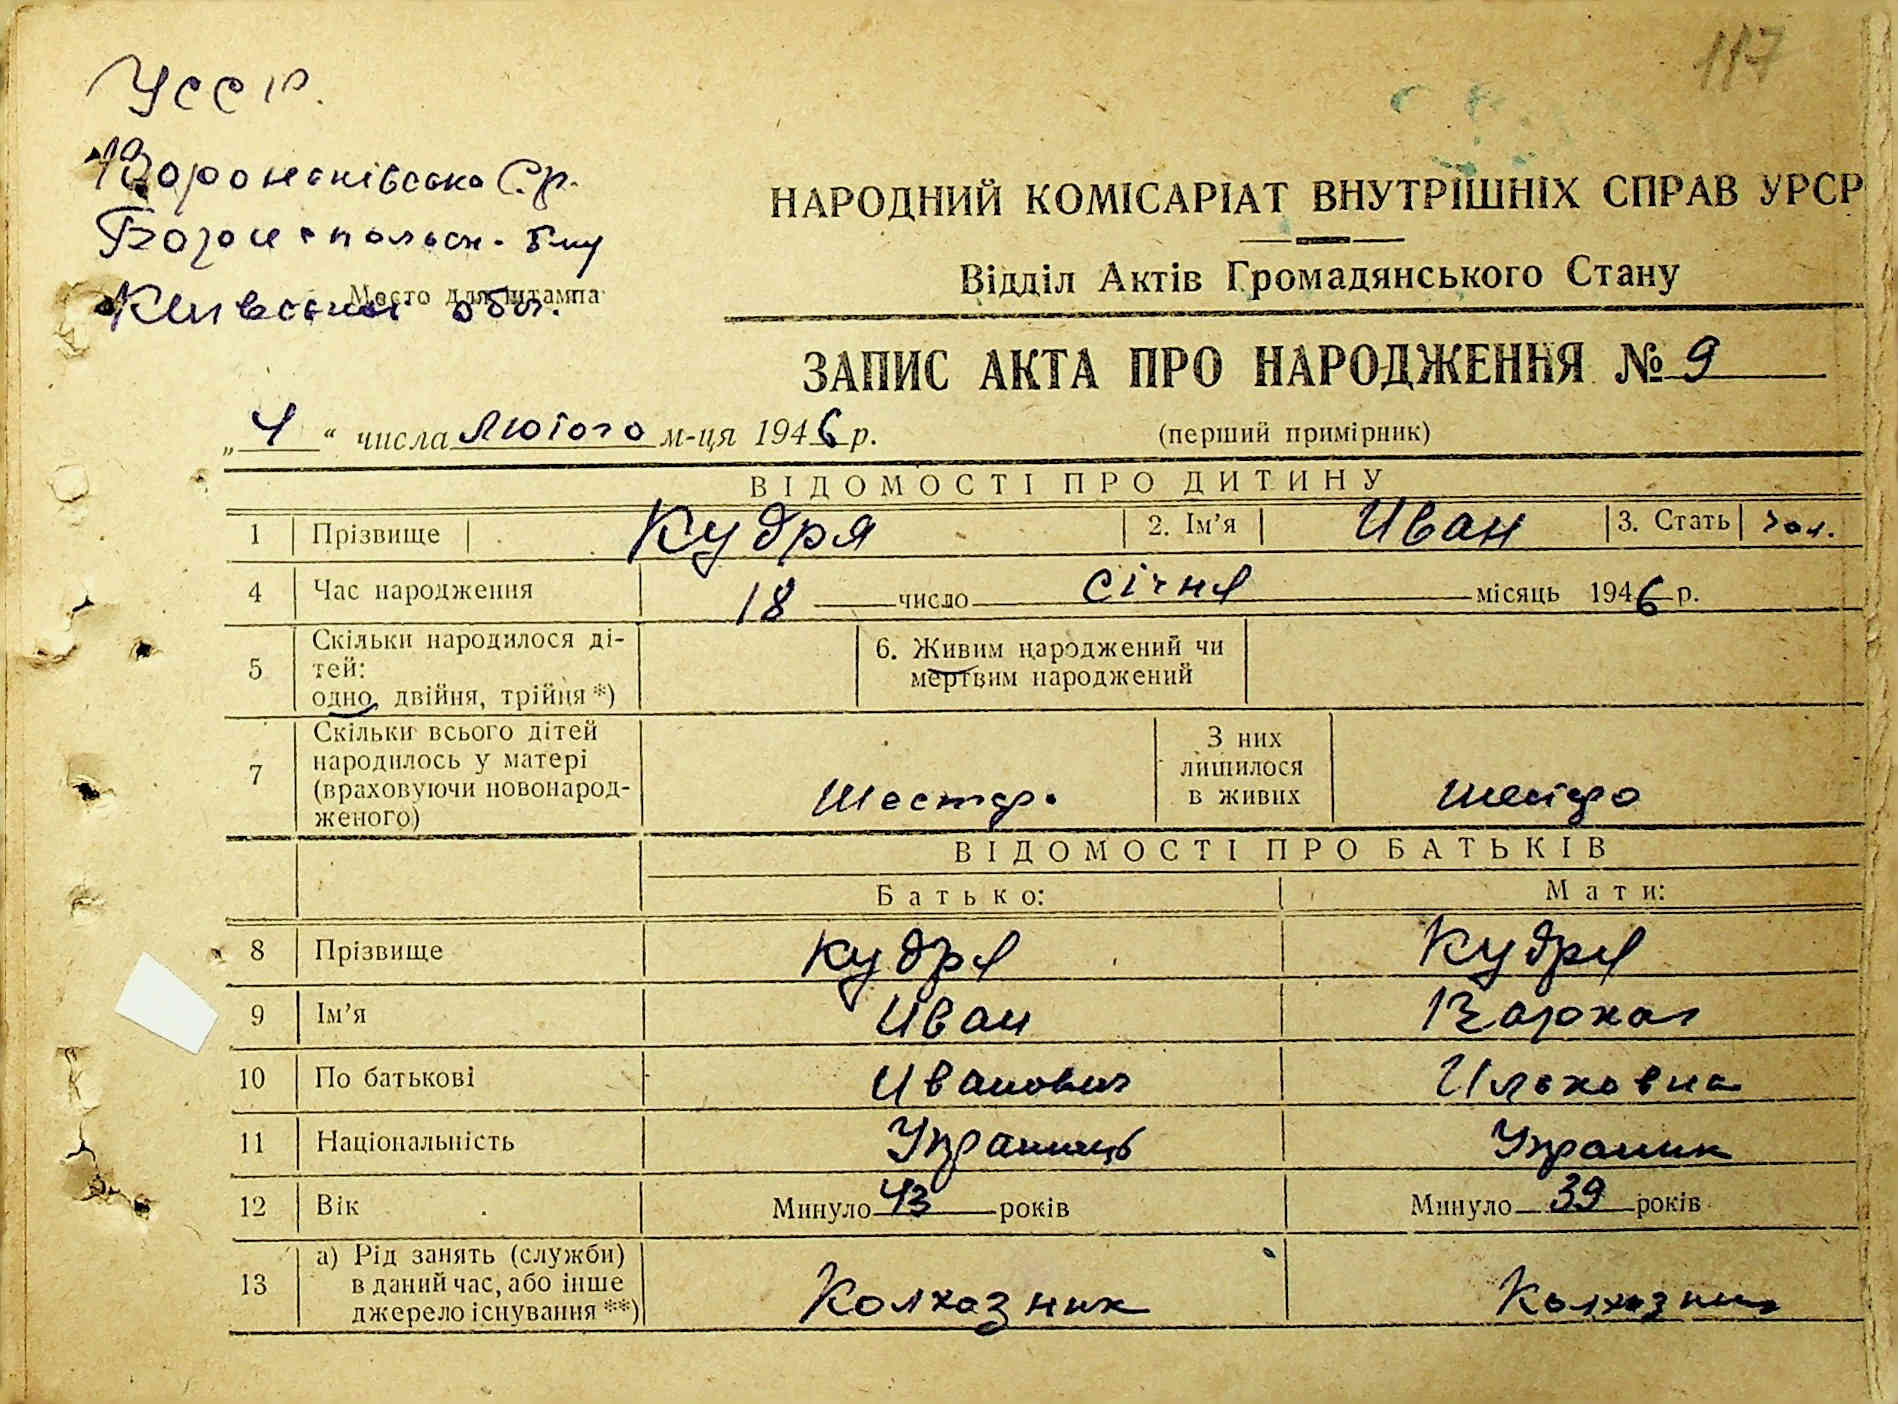 117
УССР.
Вороньківська С.р.
Бориспольск.
Київської обл.
Место для штампа
НАРОДНИЙ КОМІСАРІАТ ВНУТРІШНІХ СПРАВ УРСР
Відділ Актів Громадянського Стану
ЗАПИС АКТА ПРО НАРОДЖЕННЯ № 9
„ 4 “ числа Лютого м-ця 1946 р. (перший примірник)
ВІДОМОСТІ ПРО ДИТИНУ
1 Прізвище Кудря 2. Ім’я Иван 3. Стать чол.
4 Час народження 18 число січня місяць 1946 р.
5 Скільки народилося ді-
тей:
одно, двійня, трійня *)
6. Живим народжений чи
мертвим народжений
7 Скільки всього дітей
народилось у матері
(враховуючи новонарод-
женого)
Шестеро
З них
лишилося
в живих
шестеро
ВІДОМОСТІ ПРО БАТЬКІВ
Батько: Мати:
8 Прізвище Кудря Кудря
9 Ім’я Иван
10 По батькові Иванович Ильковна
11 Національність Українець Українк
12 Вік Минуло 43 років Минуло 39 років
13 а) Рід занять (служби)
в даний час, або інше
джерело існування **)
Колхозник Колхозниц